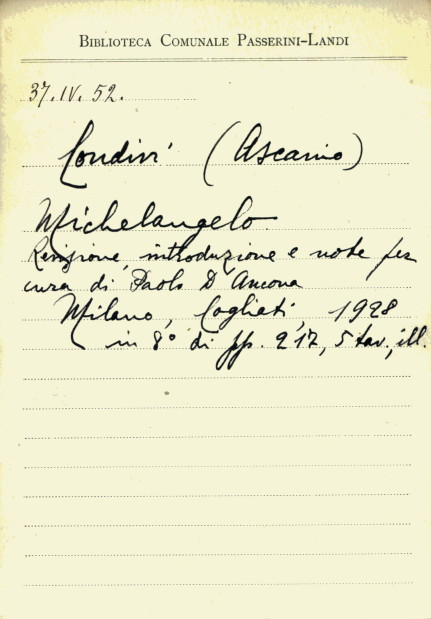 BIBLIOTECA COMUNALE PASSERINI-LANDI
37.IV.52.
Condivi (Ascanio)
Michelangelo
Revisione, introduzione e note per
cura di Paolo D'Ancona
Milano, Cogliati, 1928
in 8° di pp. 217, 5 tav., ill.